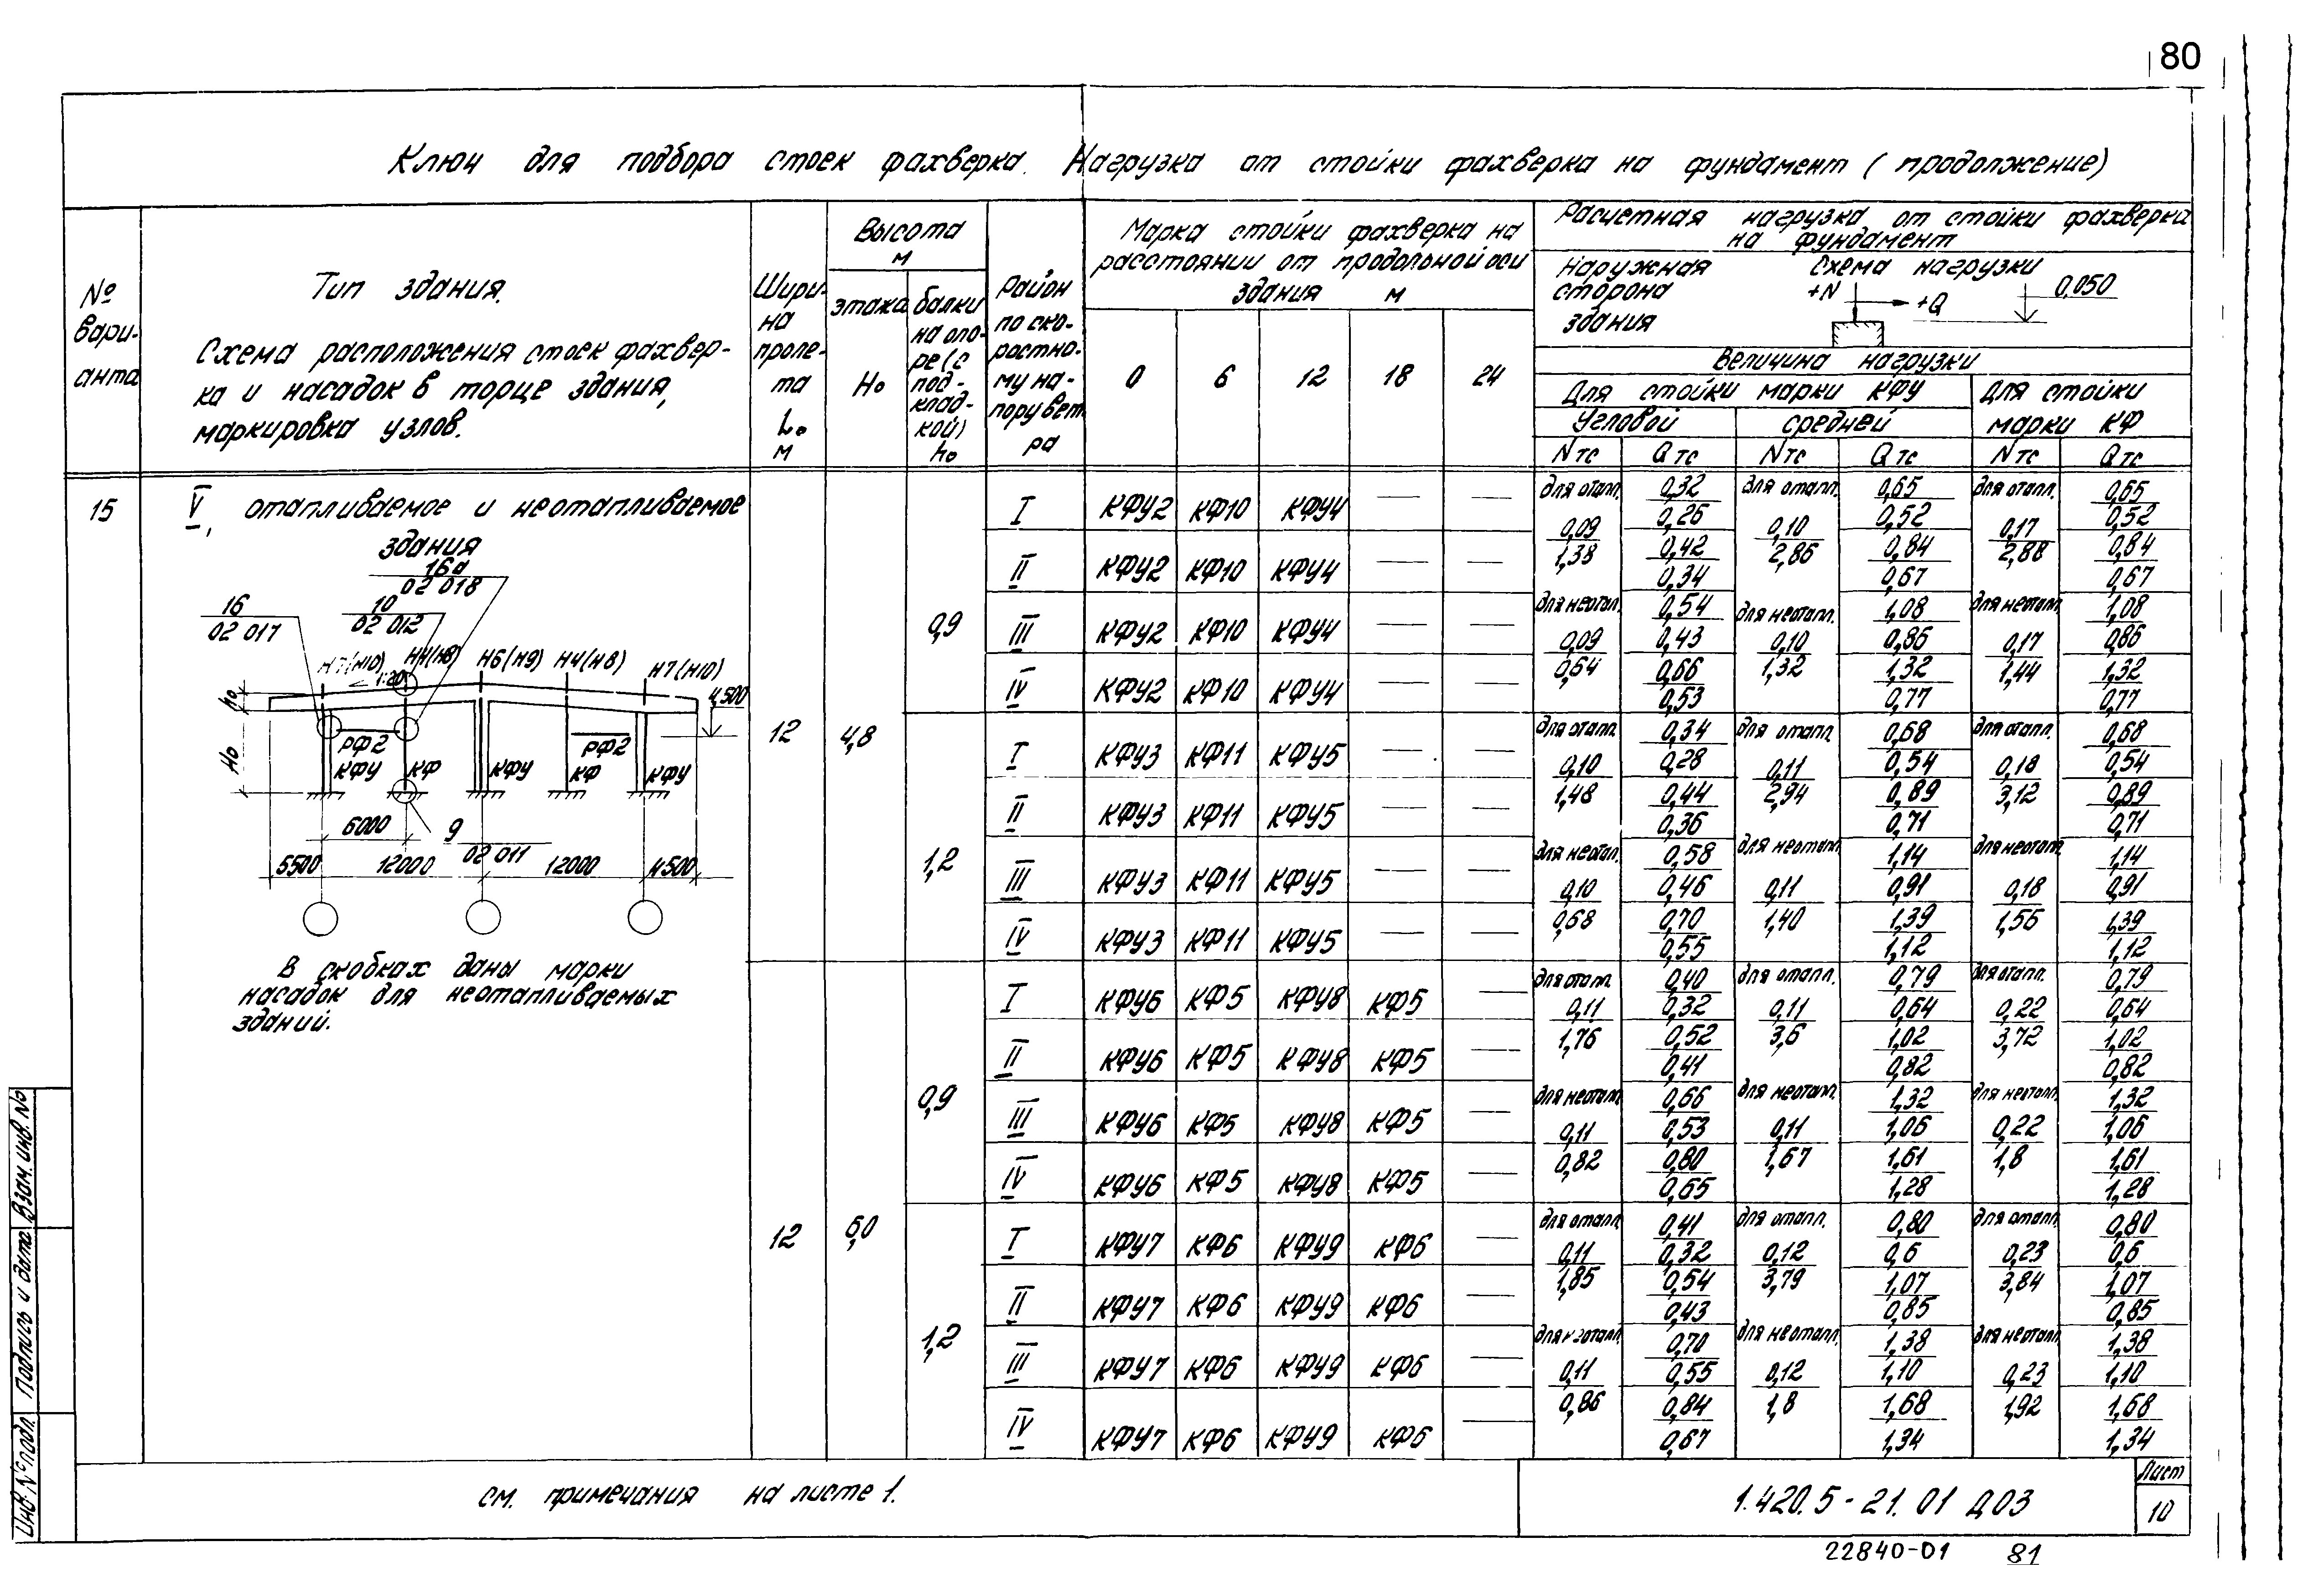 80
Ключ для подбора стоек фахверка. Нагрузка от стойки фахверка на фундамент (продолжение)
№ вари- анта
Тип здания.
Схема расположения стоек фахвер-
ка и насадок в торце здания,
маркировка узлов.
Шири- на проле- та L₀ м
Высота м
этажа H₀
балки на опо- ре (с под- клад- кой) h₀
Район по ско- ростно- му на- пору вет- ра
Марка стойки фахверка на
расстоянии от продольной оси
здания м
0 6 12 18 24
Расчетная нагрузка от стойки фахверка
на фундамент
Наружная сторона здания
Схема нагрузки
+N +Q 0,050
Величина нагрузки
Для стойки марки КФУ
Для стойки марки КФ
Угловой средней
N тс Q тс N тс Q тс N тс Q тс
15
V, отапливаемое и неотапливаемое
здания
16а
02 018
16
02 017
10
02 012
Н7(Н10) Н4(Н8) Н6(Н9) Н4(Н8) Н7(Н10)
1:20
4,500
h₀
H₀
РФ2 РФ2
КФУ КФ КФУ КФ КФУ
6000
9
02 011
5500 12000 12000 4500
В скобках даны марки
насадок для неотапливаемых
зданий.
12 4,8
0,9
I КФУ2 КФ10 КФУ4 — —
II КФУ2 КФ10 КФУ4 — —
III КФУ2 КФ10 КФУ4 — —
IV КФУ2 КФ10 КФУ4 — —
для отапл. 0,32 для отапл. 0,65 для отапл. 0,65
0,09 0,26 0,10 0,52 0,17 0,52
1,38 0,42 2,86 0,84 2,88 0,84
0,34 0,67 0,67
для неотап. 0,54 для неотапл. 1,08 для неотапл. 1,08
0,09 0,43 0,10 0,86 0,17 0,86
0,64 0,66 1,32 1,32 1,44 1,32
0,53 0,77 0,77
1,2
I КФУ3 КФ11 КФУ5 — —
II КФУ3 КФ11 КФУ5 — —
III КФУ3 КФ11 КФУ5 — —
IV КФУ3 КФ11 КФУ5 — —
для отапл. 0,34 для отапл. 0,68 для отапл. 0,68
0,10 0,28 0,11 0,54 0,18 0,54
1,48 0,44 2,94 0,89 3,12 0,89
0,36 0,71 0,71
для неотап. 0,58 для неотапл. 1,14 для неотапл. 1,14
0,10 0,46 0,11 0,91 0,18 0,91
0,68 0,70 1,40 1,39 1,56 1,39
0,55 1,12 1,12
12 6,0
0,9
I КФУ6 КФ5 КФУ8 КФ5 —
II КФУ6 КФ5 КФУ8 КФ5 —
III КФУ6 КФ5 КФУ8 КФ5 —
IV КФУ6 КФ5 КФУ8 КФ5 —
для отапл. 0,40 для отапл. 0,79 для отапл. 0,79
0,11 0,32 0,11 0,64 0,22 0,64
1,76 0,52 3,6 1,02 3,72 1,02
0,41 0,82 0,82
для неотапл. 0,66 для неотапл. 1,32 для неотапл. 1,32
0,11 0,53 0,11 1,06 0,22 1,06
0,82 0,80 1,67 1,61 1,8 1,61
0,65 1,28 1,28
1,2
I КФУ7 КФ6 КФУ9 КФ6 —
II КФУ7 КФ6 КФУ9 КФ6 —
III КФУ7 КФ6 КФУ9 КФ6 —
IV КФУ7 КФ6 КФУ9 КФ6 —
для отапл. 0,41 для отапл. 0,80 для отапл. 0,80
0,11 0,32 0,12 0,6 0,23 0,6
1,85 0,54 3,79 1,07 3,84 1,07
0,43 0,85 0,85
для неотапл. 0,70 для неотапл. 1,38 для неотапл. 1,38
0,11 0,55 0,12 1,10 0,23 1,10
0,86 0,84 1,8 1,68 1,92 1,68
0,67 1,34 1,34
см. примечания на листе 1.
1.420.5-21.01 Д03
Лист
10
22840-01 81
Инв. № подл. Подпись и дата Взам. инв. №